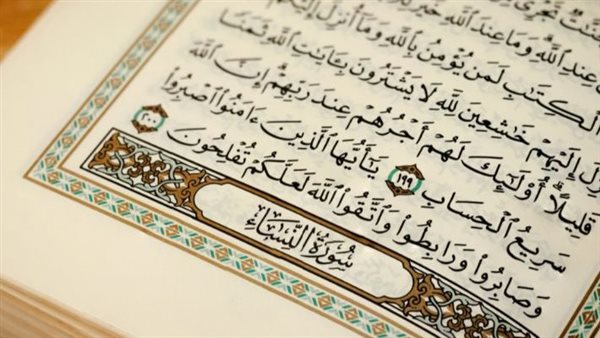 تَجْرِى
عِندِ ٱللَّهِ وَمَا عِندَ ٱللَّهِ خَيْرٌ
ٱلْكِتَٰبِ لَمَن يُؤْمِنُ بِٱللَّهِ وَمَآ أُنزِلَ إِلَيْكُمْ
إِلَيْهِمْ خَٰشِعِينَ لِلَّهِ لَا يَشْتَرُونَ بِـَٔايَٰتِ ٱللَّهِ ثَمَنًا
قَلِيلًا ۗ أُو۟لَٰٓئِكَ لَهُمْ أَجْرُهُمْ عِندَ رَبِّهِمْ ۗ إِنَّ ٱللَّهَ
سَرِيعُ ٱلْحِسَابِ ١٩٩ يَٰٓأَيُّهَا ٱلَّذِينَ ءَامَنُوا۟ ٱصْبِرُوا۟
وَصَابِرُوا۟ وَرَابِطُوا۟ وَٱتَّقُوا۟ ٱللَّهَ لَعَلَّكُمْ تُفْلِحُونَ ٢٠٠
سُورَةُ النِّسَاءِ